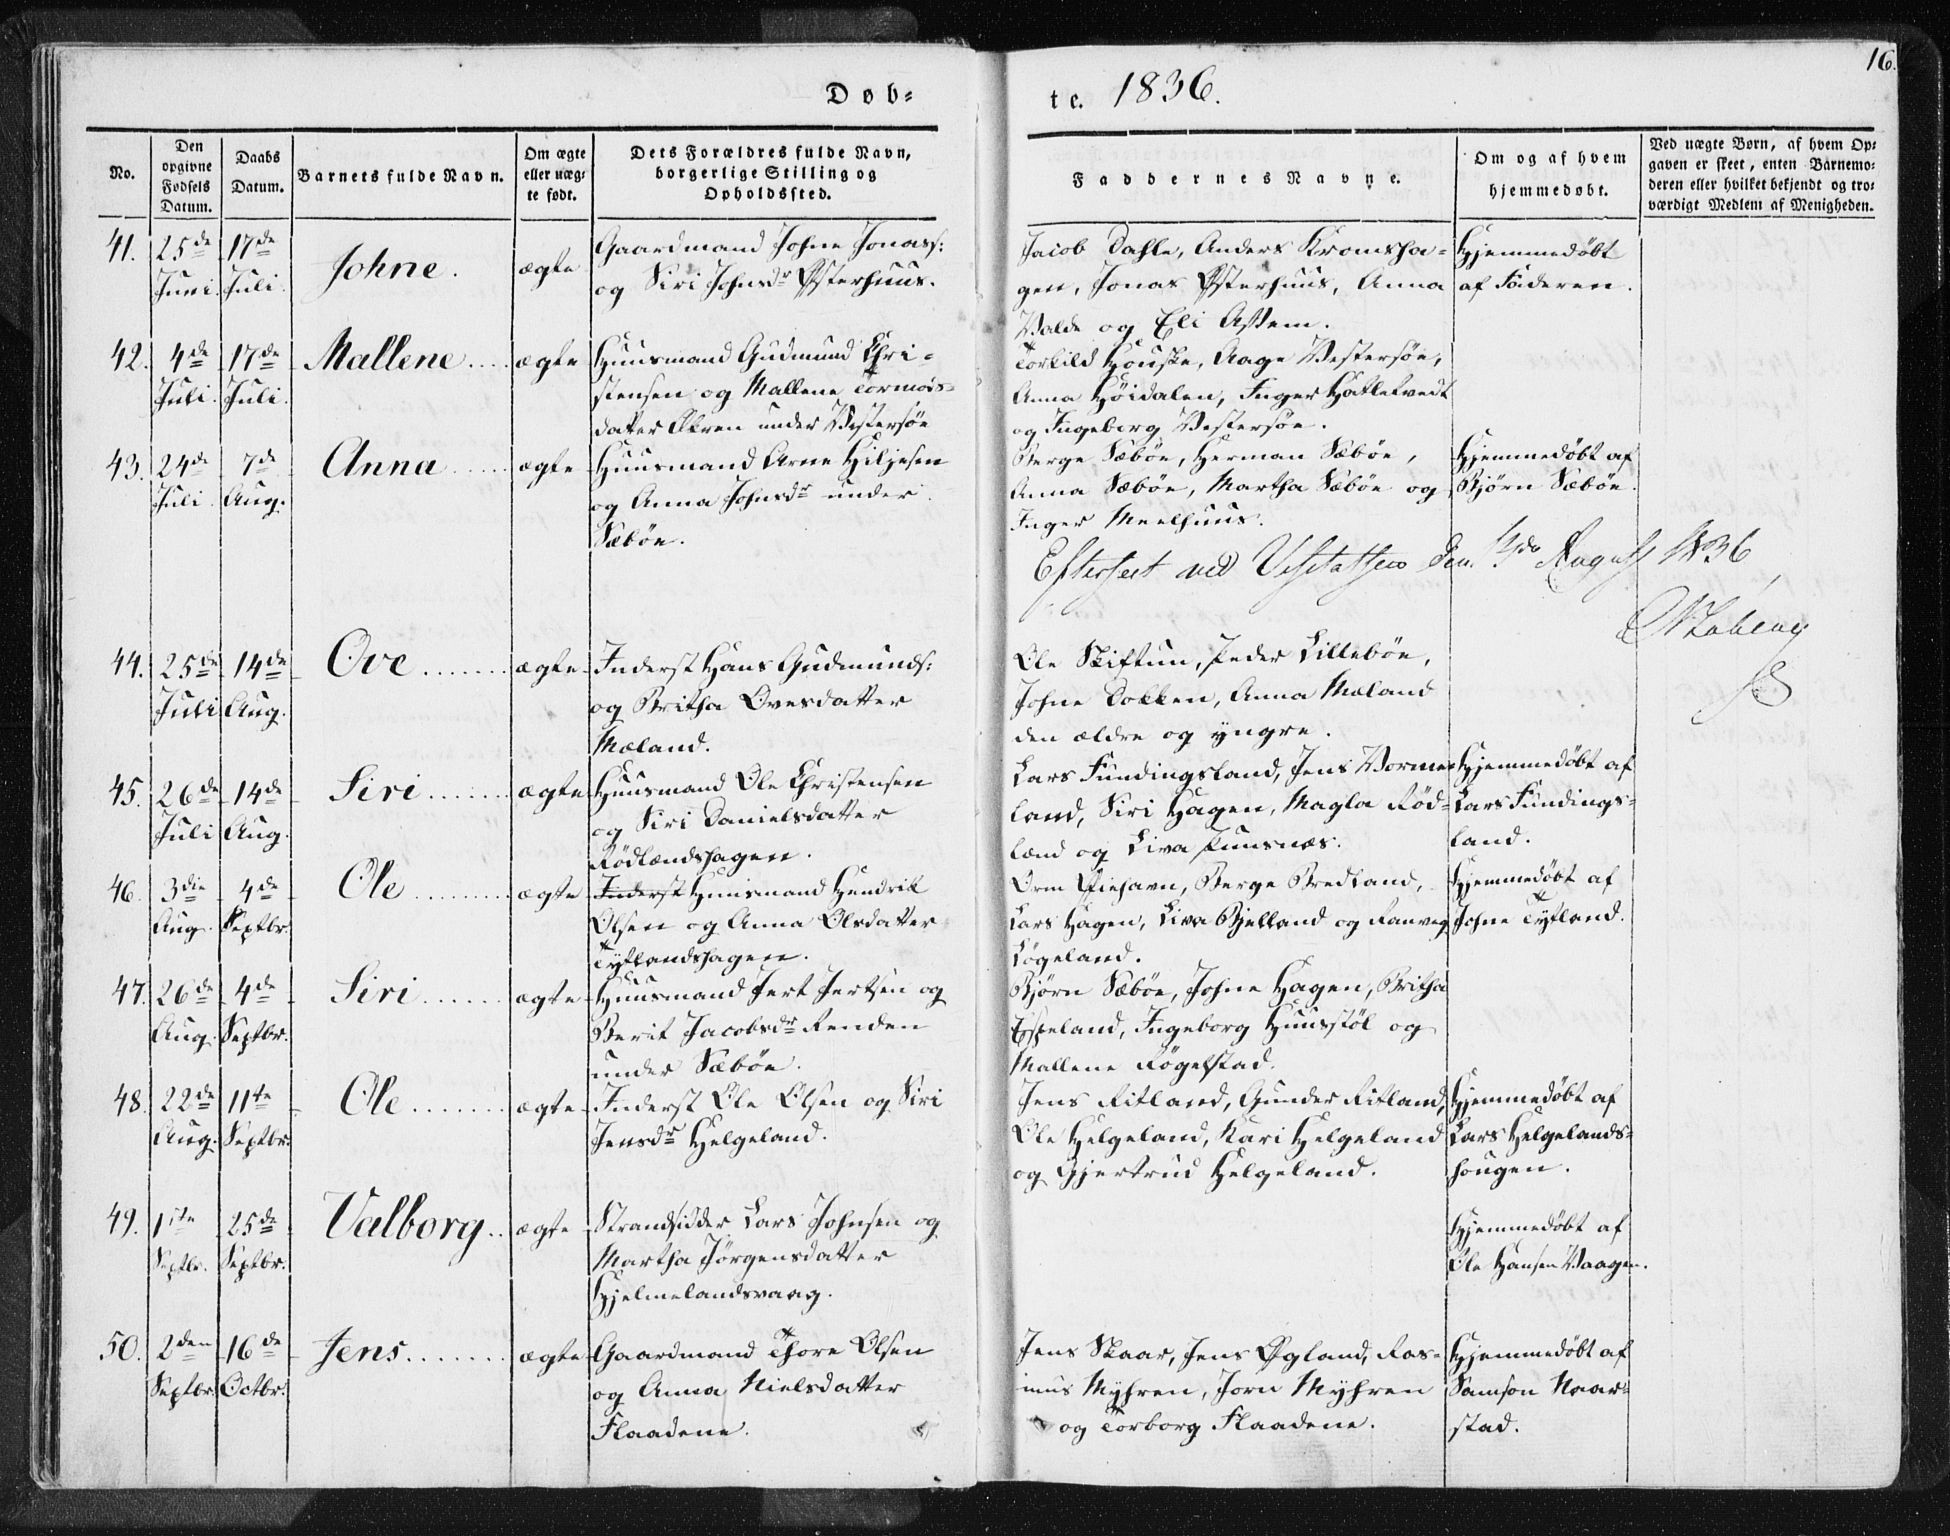 16.
Døb-
te. 1836.
No.
Den opgivne Fødsels Datum.
Daabs Datum.
Barnets fulde Navn.
Om ægte eller uæg-te født.
Dets Forældres fulde Navn, borgerlige Stilling og Opholdssted.
Faddernes Navne.
Om og af hvem hjemmedøbt.
Ved uægte Børn, af hvem Op-
gaven er skeet, enten Barnemo-
deren eller hvilket bekjendt og tro-
værdigt Medlem af Menigheden.
41. 25de Juni. 17de Juli. Johne. ægte
Gaardmand Johne Jonass:
og Siri Johnsdr Østerhuus.
Jacob Dahle, Anders Kromsha-
gen, Jonas Østerhuus, Anna
Valde og Eli
Hjemmedøbt
af Faderen.
42. 4de Juli. 17de Juli. Mallene.... ægte
Huusmand Gudmund Chri-
stensen og Mallene Tormods-
datter Økren under Vestersøe
Torkild Houske, Aage Vestersøe,
Anna Høidalen, Inger Hatletvedt
og Ingeborg Vestersøe.
43. 24de Juli. 7de Aug. Anna..... ægte
Huusmand Arne Hiljesen
og Anna Johnsdr under
Sæbøe.
Berge Sæbøe, Herman Sæbøe,
Anna Sæbøe, Martha Sæbøe og
Inger Meelhuus.
Hjemmedøbt af
Bjørn Sæbøe.
Efterseet ved Visitatsen den August 1836
44. 25de Juli 14de Aug. Ove....... ægte
Inderst Hans Gudmunds:
og Britha Ovesdatter
Mæland.
Ole Skiftun, Peder Lillebøe,
Johne Dokken, Anna Mæland
den ældre og yngre.
45. 26de Juli 14de Aug. Siri...... ægte
Huusmand Ole Christensen
og Siri Danielsdatter
Rødlændshagen.
Lars Fundingsland, Jens Vorme-
land, Siri Hagen, Magla Rød-
lænd og Liva Puusnæs.
Hjemmedøbt af
Lars Fundings-
land.
46. 3die Aug. 4de Septbr. Ole........ ægte
Inderst Huusmand Hendrik
Olsen og Anna Olsdatter
Tytlandshagen.
Orm Fiehavn, Berge Bredland,
Lars Hagen, Liva Bjelland og Ranveg
Løgeland.
Hjemmedøbt af
Johne Tytland.
47. 26de Aug. 4de Septbr. Siri...... ægte
Huusmand Jert Jertsen og
Berit Jacobsdr Renden
under Sæbøe.
Bjørn Sæbøe, Johne Hagen, Britha
Espeland, Ingeborg Huusstøl og
Mallene Røgelstad.
48. 22de Aug. 11te Septbr. Ole....... ægte
Inderst Ole Olsen og Siri
Jensdr Helgeland.
Jens Ritland, Gunder Ritland,
Ole Helgeland, Kari Helgeland
og Gjertrud Helgeland.
Hjemmedøbt af
Lars Helgelands-
hougen.
49. 1ste Septbr. 25de Septbr. Valborg.. ægte
Strandsidder Lars Johnsen og
Martha Jørgensdatter
Hjelmelandsvaag.
Hjemmedøbt af
Ole Hansen Vaagen.
50. 2den Septbr. 16de Octbr. Jens....... ægte
Gaardmand Thore Olsen
og Anna Nielsdatter
Flaadene.
Jens Skaar, Jens Øgland, Ras-
mus Myhren, Jorn Myhren
og Torborg Flaadene.
Hjemmedøbt af
Samson Naar-
stad.